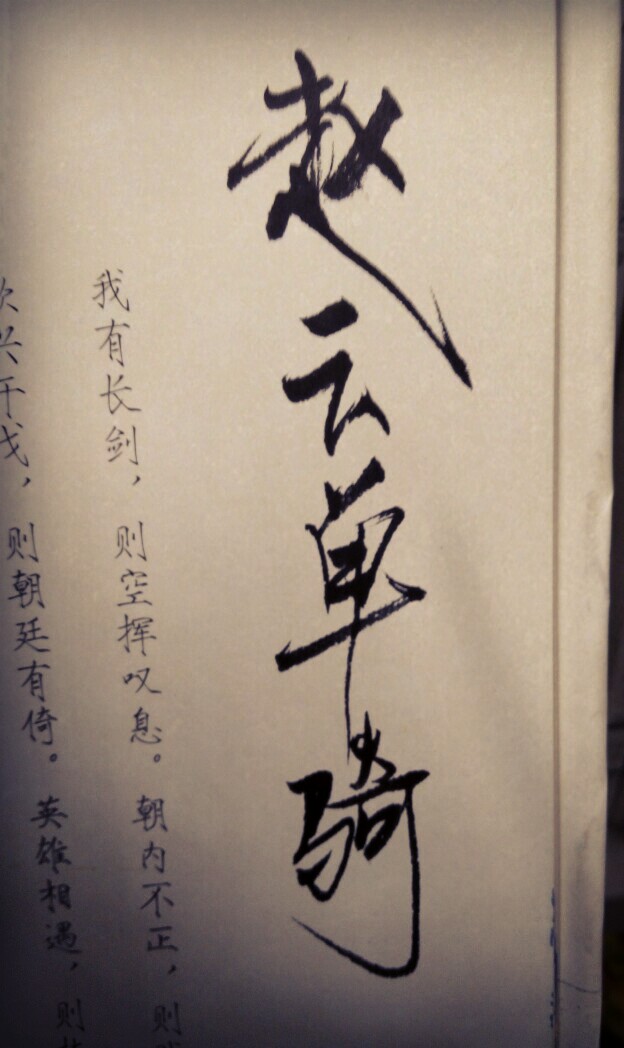 赵云单骑
我有长剑，则空挥叹息。朝内不正，则
兴干戈，则朝廷有倚。英雄相遇，则